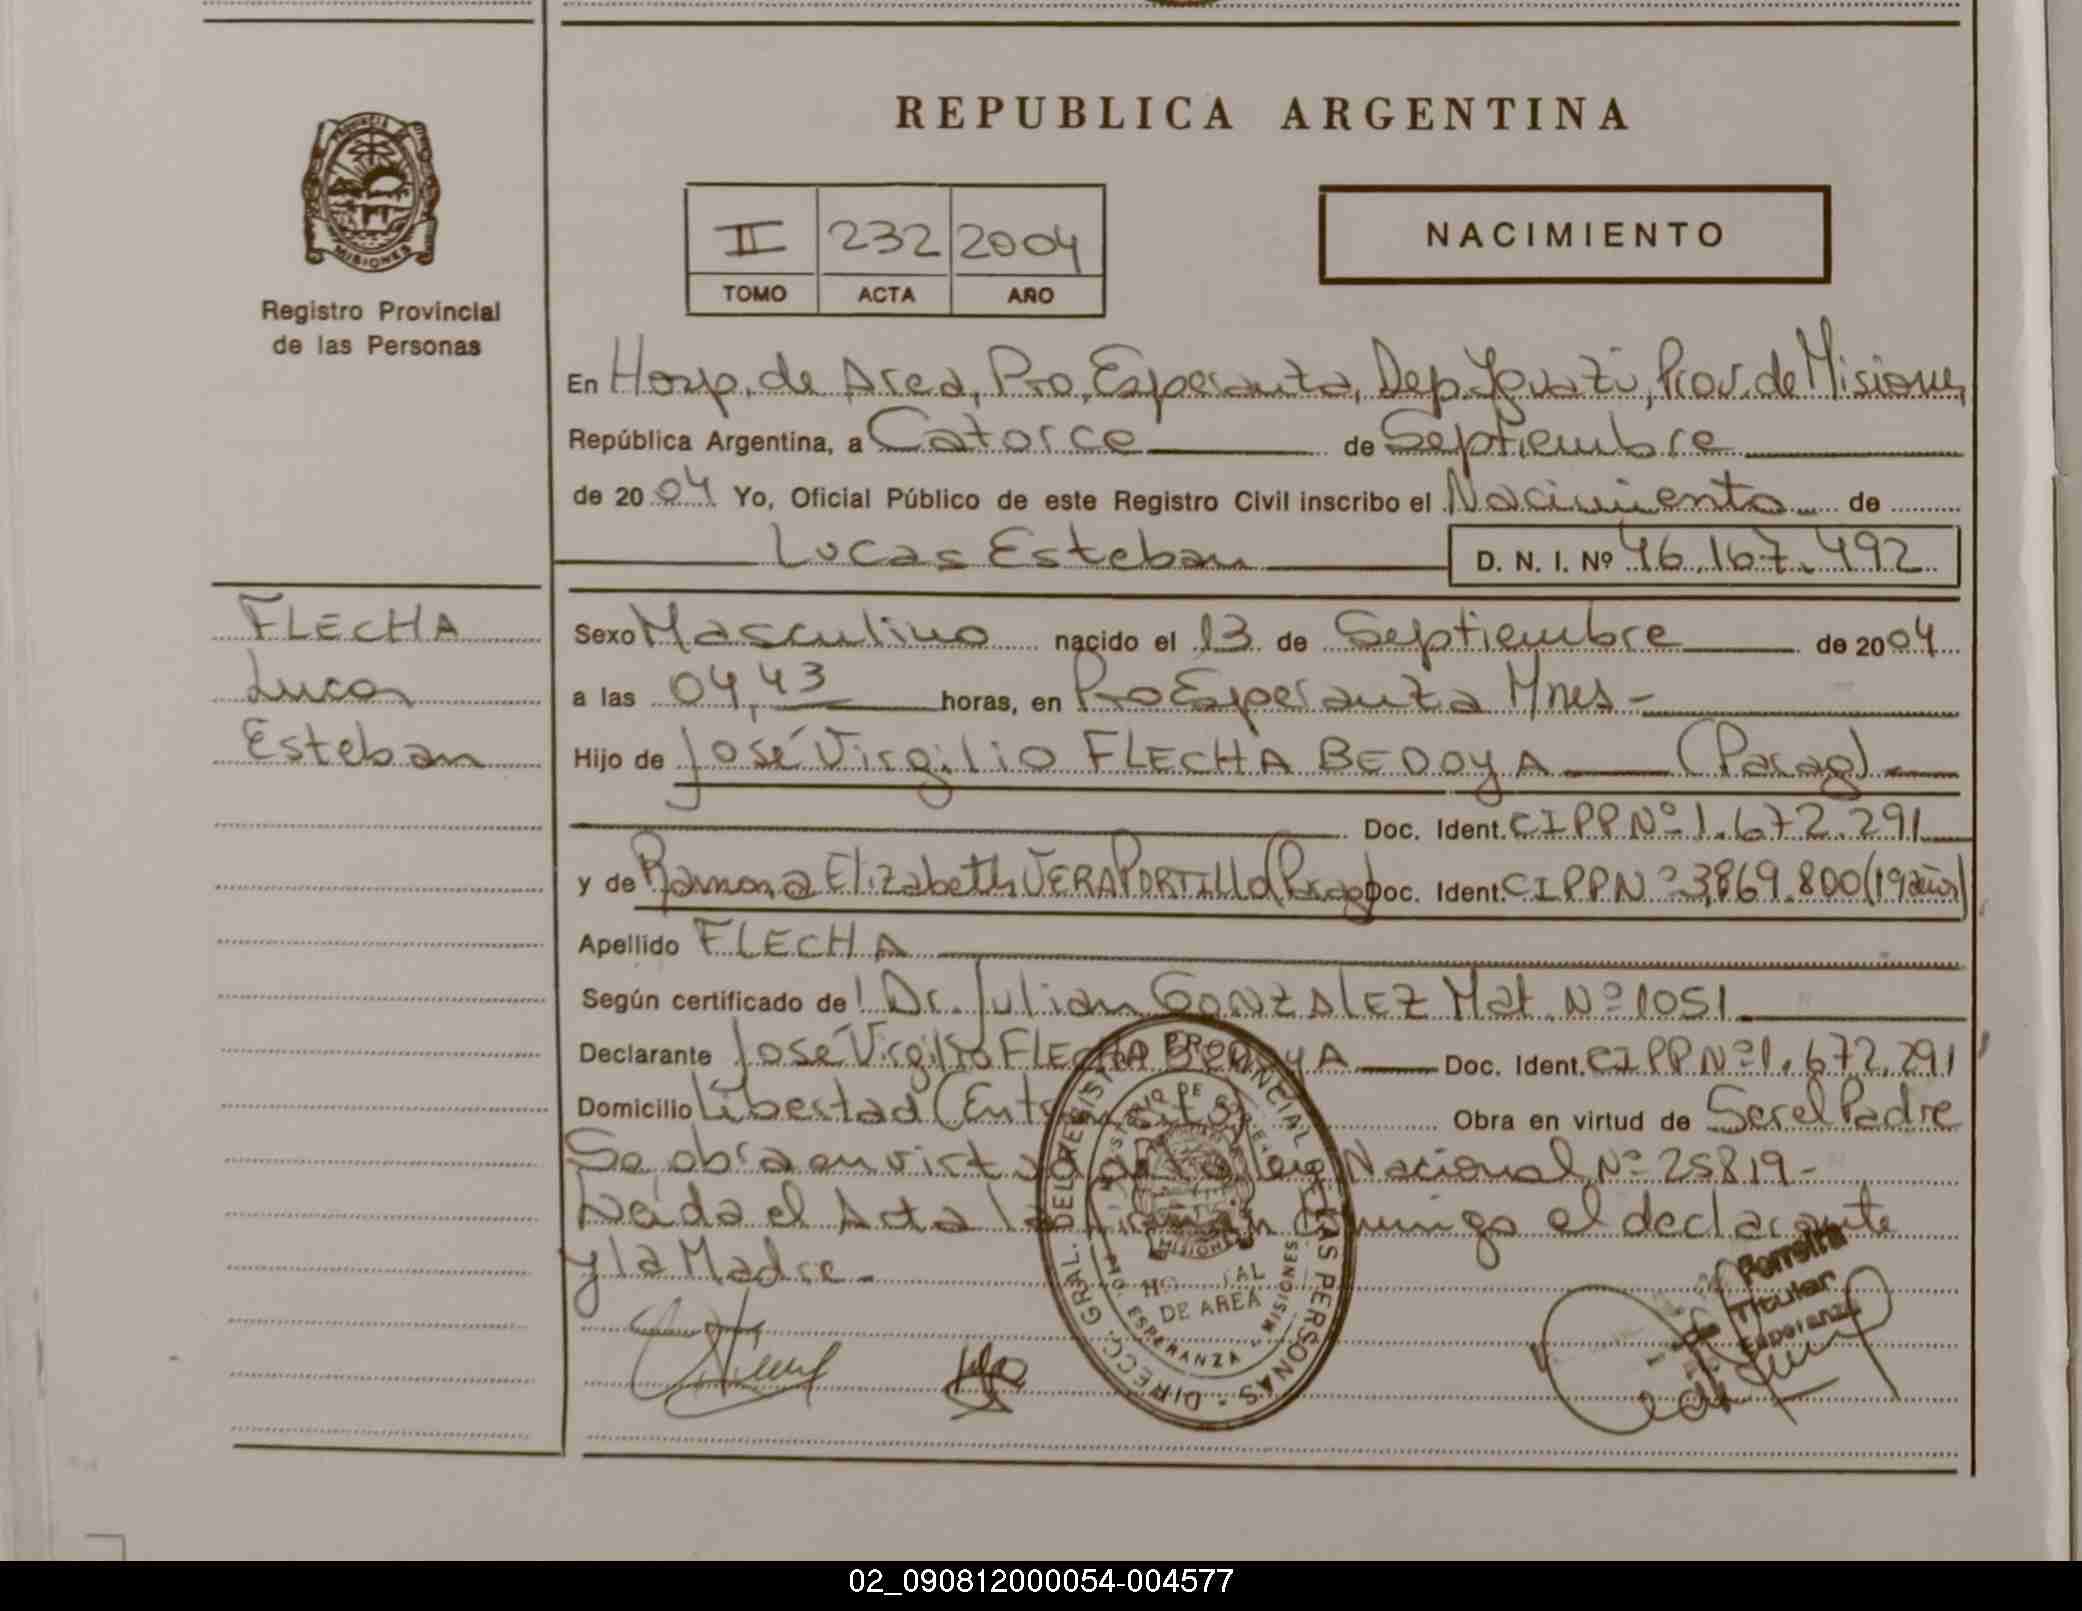 REPUBLICA ARGENTINA
NACIMIENTO
II 232 2004
TOMO ACTA AÑO
PROVINCIA DE
MISIONES
Registro Provincial
de las Personas
En Hosp. de Area, Pto. Esperanza, Dep. Iguazú, Prov. de Misiones
República Argentina, a Catorce de Septiembre
de 2004 Yo, Oficial Público de este Registro Civil inscribo el Nacimiento de
Lucas Esteban D. N. I. Nº 46.167.492
FLECHA
Lucas
Esteban
Sexo Masculino nacido el 13 de Septiembre de 2004
a las 04,43 horas, en Pto Esperanza Mnes-
Hijo de José Virgilio FLECHA BEDOYA (Parag)
Doc. Ident. CIPPNº 1.672.291
y de Ramona Elizabeth VERA PORTILLO (Parag) Doc. Ident. CIPPNº 3.869.800 (19 años)
Apellido FLECHA
Según certificado de Dr. Julian GONZALEZ Mat. Nº 1051
Declarante José Virgilio FLECHA BEDOYA Doc. Ident. CIPPNº 1.672.291
Domicilio Libertad Obra en virtud de Ser el Padre
Se obra en virtud de la Ley Nacional Nº 25819-
Leída el Acta la firman conmigo el declarante
y la Madre-
DIRECC. GRAL. DEL REGISTRO PROVINCIAL DE LAS PERSONAS
MINISTERIO DE
MISIONES
DE AREA
ESPERANZA - MISIONES
Ferreira
Titular
Esperanza
02_090812000054-004577